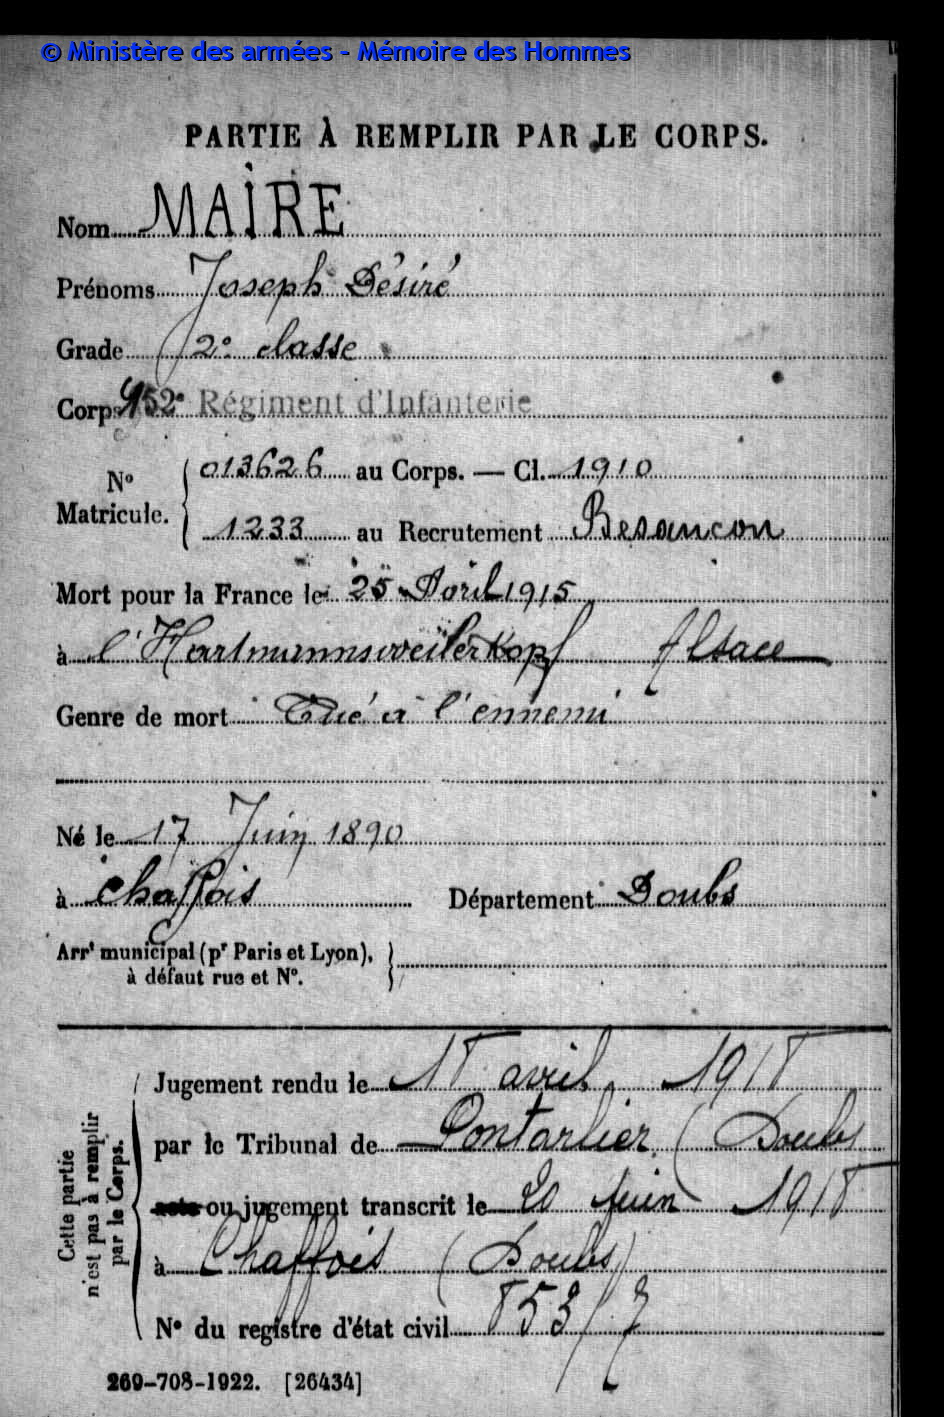 © Ministère des armées - Mémoire des Hommes
PARTIE À REMPLIR PAR LE CORPS.
Nom MAIRE
Prénoms Joseph Désiré
Grade 2e classe
Corps 152e Régiment d'Infanterie
No Matricule. { 013626 au Corps. — Cl. 1910
1233 au Recrutement Besancon
Mort pour la France le 25 Avril 1915
à l'Hartmannsweilerkopf Alsace
Genre de mort Tué à l'ennemi
Né le 17 Juin 1890
à Chaffois Département Doubs
Arrt municipal (pr Paris et Lyon),
à défaut rue et No.
Cette partie
n'est pas à remplir
par le Corps.
Jugement rendu le 18 avril 1918
par le Tribunal de Pontarlier (Doubs
acte ou jugement transcrit le 20 Juin 1918
à Chaffois (Doubs)
No du registre d'état civil
269-708-1922. [26434]